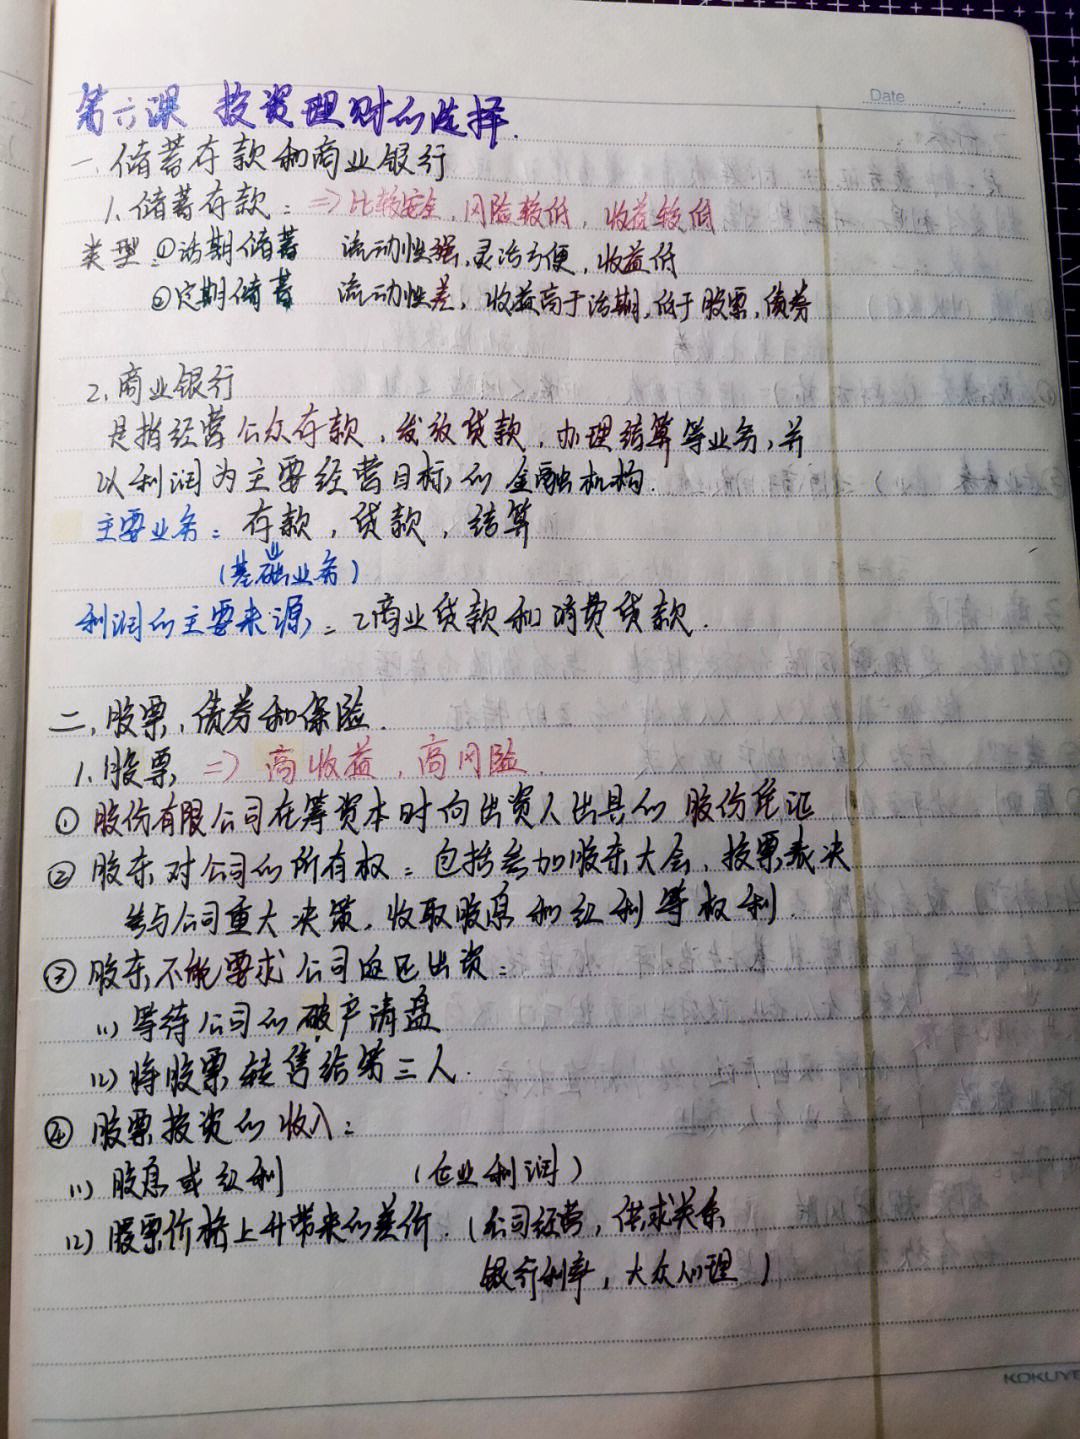 Date
第六课 投资理财的选择.
一.储蓄存款和商业银行
1.储蓄存款：⇒比较安全，风险较低，收益较低
类型：①活期储蓄 流动性强，灵活方便，收益低
②定期储蓄 流动性差，收益高于活期，低于股票，债券
2.商业银行
是指经营公众存款，发放贷款，办理结算等业务，并
以利润为主要经营目标的金融机构.
主要业务：存款，贷款，结算
(基础业务)
利润的主要来源：工商业贷款和消费贷款.
二,股票,债券和保险.
1.股票 ⇒ 高收益，高风险.
① 股份有限公司在筹资本时向出资人出具的股份凭证
② 股东对公司的所有权：包括参加股东大会，投票表决
参与公司重大决策，收取股息和红利等权利.
③ 股东不能要求公司返还出资：
(1) 等待公司的破产清盘
(2) 将股票转售给第三人.
④ 股票投资的收入：
(1) 股息或红利 (企业利润)
(2) 股票价格上升带来的差价. (公司经营，供求关系
银行利率，大众心理)
KOKUYO